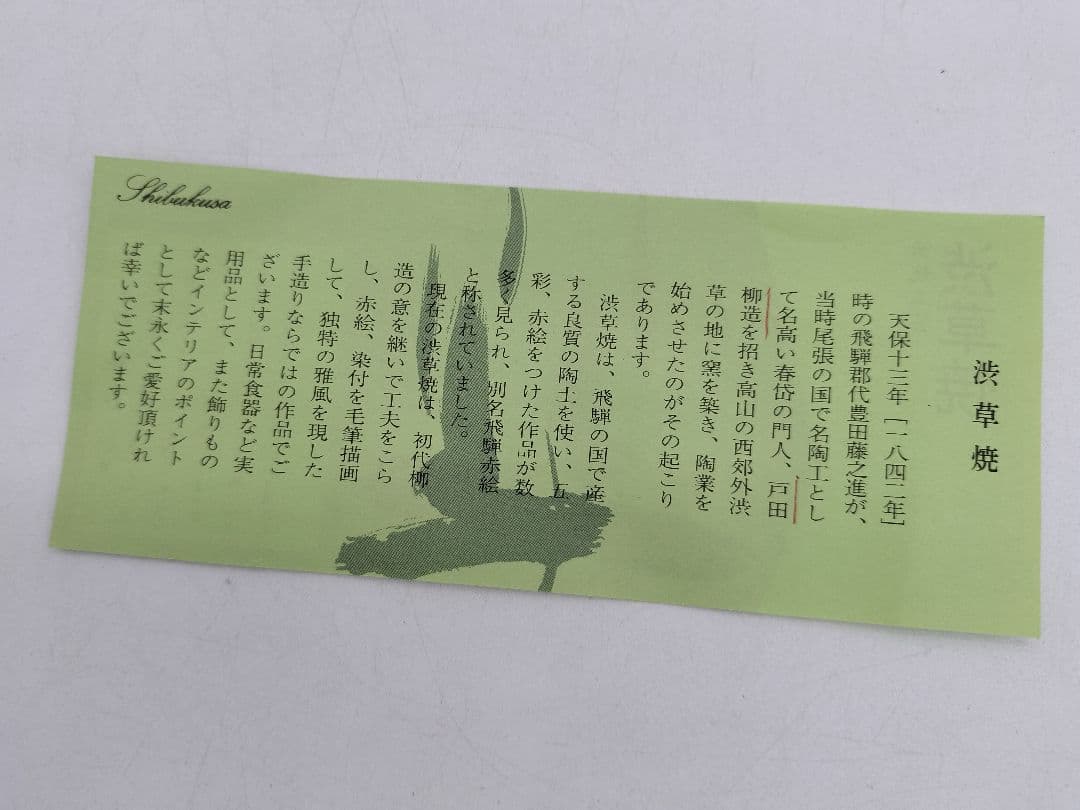 渋草焼
天保十三年［一八四二年］
時の飛騨郡代豊田藤之進が、
当時尾張の国で名陶工とし
て名高い春岱の門人、戸田
柳造を招き高山の西郊外渋
草の地に窯を築き、陶業を
始めさせたのがその起こり
であります。
渋草焼は、飛騨の国で産
する良質の陶土を使い、五
彩、赤絵をつけた作品が数
多く見られ、別名飛騨赤絵
と称されていました。
現在の渋草焼は、初代柳
造の意を継いで工夫をこら
し、赤絵、染付を毛筆描画
して、独特の雅風を現した
手造りならではの作品でご
ざいます。日常食器など実
用品として、また飾りもの
などインテリアのポイント
として末永くご愛好頂けれ
ば幸いでございます。
Shibukusa